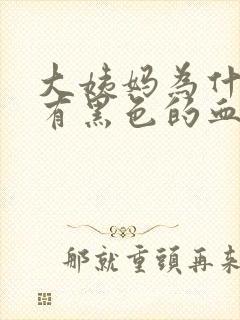 大姨妈為什
有黑色的血
那就重頭再来